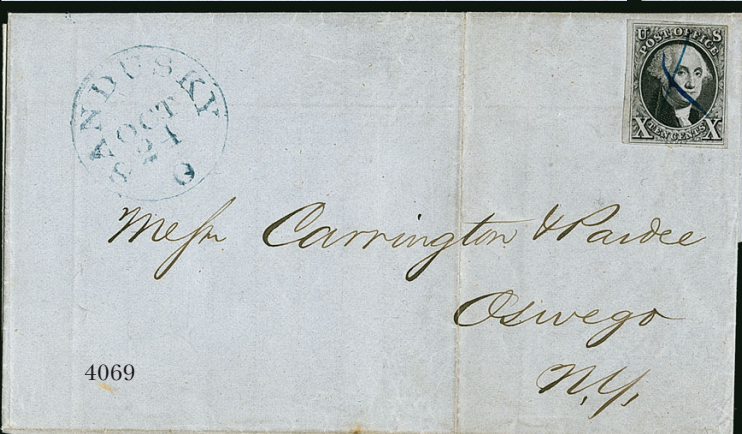 U S
POST OFFICE
X TEN CENTS X
SANDUSKY O
OCT
24
Messrs Carrington & Pardee
Oswego
N.Y.
4069